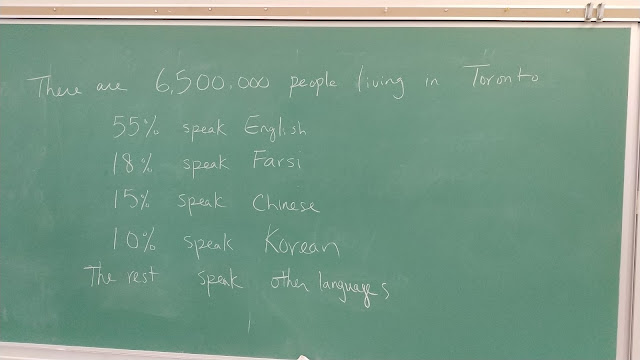 There are 6,500,000 people living in Toronto
55% speak English
18% speak Farsi
15% speak Chinese
10% speak Korean
The rest speak other languages